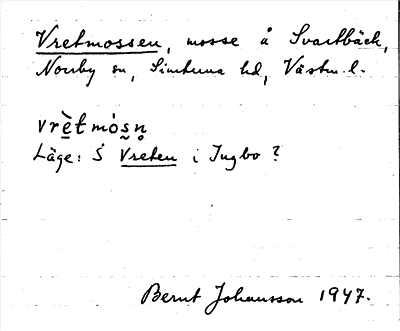 Vretmossen, mosse å Svartbäck,
Norrby sn, Simtuna hd, Västm. l.
vrè̱tmó̀s̬n̥
Läge: S Vreten i Ingbo ?
Bernt Johansson 1947.